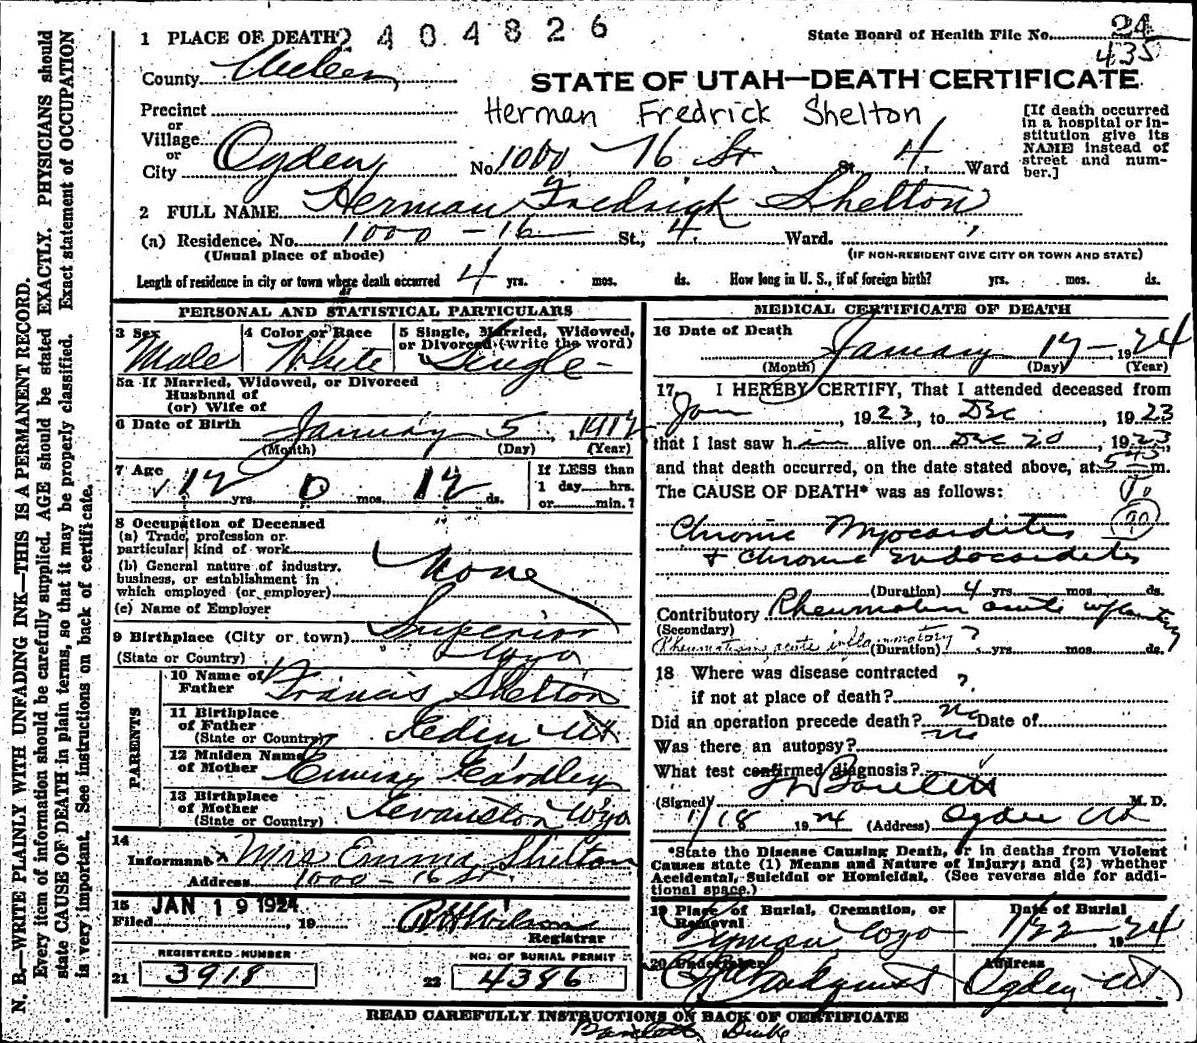 N. B.—WRITE PLAINLY WITH UNFADING INK—THIS IS A PERMANENT RECORD.
Every item of information should be carefully supplied. AGE should be stated EXACTLY. PHYSICIANS should
state CAUSE OF DEATH in plain terms, so that it may be properly classified. Exact statement of OCCUPATION
is very important. See instructions on back of certificate.
2404826
State Board of Health File No. 24
435
1 PLACE OF DEATH
County
STATE OF UTAH—DEATH CERTIFICATE
Precinct
or
Village
or
City Ogden No. 1000 16 St St. 4 Ward
Herman Fredrick Shelton
[If death occurred
in a hospital or in-
stitution give its
NAME instead of
street and num-
ber.]
2 FULL NAME Herman Fredrick Shelton
(a) Residence. No. 1000 - 16 St., 4 Ward.
(Usual place of abode) (IF NON-RESIDENT GIVE CITY OR TOWN AND STATE)
Length of residence in city or town where death occurred 4 yrs. mos. ds. How long in U. S., if of foreign birth? yrs. mos. ds.
PERSONAL AND STATISTICAL PARTICULARS
3 Sex Male
4 Color or Race White
5 Single, Married, Widowed,
or Divorced (write the word)
Single
5a If Married, Widowed, or Divorced
Husband of
(or) Wife of
6 Date of Birth January 5, 1912
(Month) (Day) (Year)
7 Age 12 yrs. 0 mos. 12 ds.
If LESS than
1 day hrs.
or min.?
8 Occupation of Deceased
(a) Trade, profession or
particular kind of work
(b) General nature of industry,
business, or establishment in
which employed (or employer)
None
(c) Name of Employer
9 Birthplace (City or town) Superior
(State or Country) Wyo
PARENTS
10 Name of
Father Francis Shelton
11 Birthplace
of Father
(State or Country) Eden Ut
12 Maiden Name
of Mother Emma Eardley
13 Birthplace
of Mother
(State or Country) Evanston Wyo
14
Informant x Mrs Emma Shelton
Address 1000 - 16 St.
15 JAN 19 1924
Filed , 19 Wilson
Registrar
REGISTERED NUMBER
21 3918
NO. OF BURIAL PERMIT
22 4386
MEDICAL CERTIFICATE OF DEATH
16 Date of Death
January 17 - 1924
(Month) (Day) (Year)
17 I HEREBY CERTIFY, That I attended deceased from
Jan , 1923, to Dec , 1923
that I last saw him alive on Dec 20, 1923,
and that death occurred, on the date stated above, at 5 45 m.
The CAUSE OF DEATH* was as follows:
90
Chronic Myocarditis
+ Chronic Endocarditis
(Duration) 4 yrs. mos. ds.
Contributory Rheumatism acute inflammatory
(Secondary)
Rheumatism, acute inflammatory (Duration) ? yrs. mos. ds.
18 Where was disease contracted
if not at place of death? ?
Did an operation precede death? no Date of
Was there an autopsy? no
What test confirmed diagnosis?
(Signed) M. D.
1/18 1924 (Address) Ogden Ut
*State the Disease Causing Death, or in deaths from Violent
Causes state (1) Means and Nature of Injury; and (2) whether
Accidental, Suicidal or Homicidal. (See reverse side for addi-
tional space.)
19 Place of Burial, Cremation, or
Removal
Lyman Wyo
Date of Burial
1/22 1924
20 Undertaker
Address
Ogden Ut.
READ CAREFULLY INSTRUCTIONS ON BACK OF CERTIFICATE